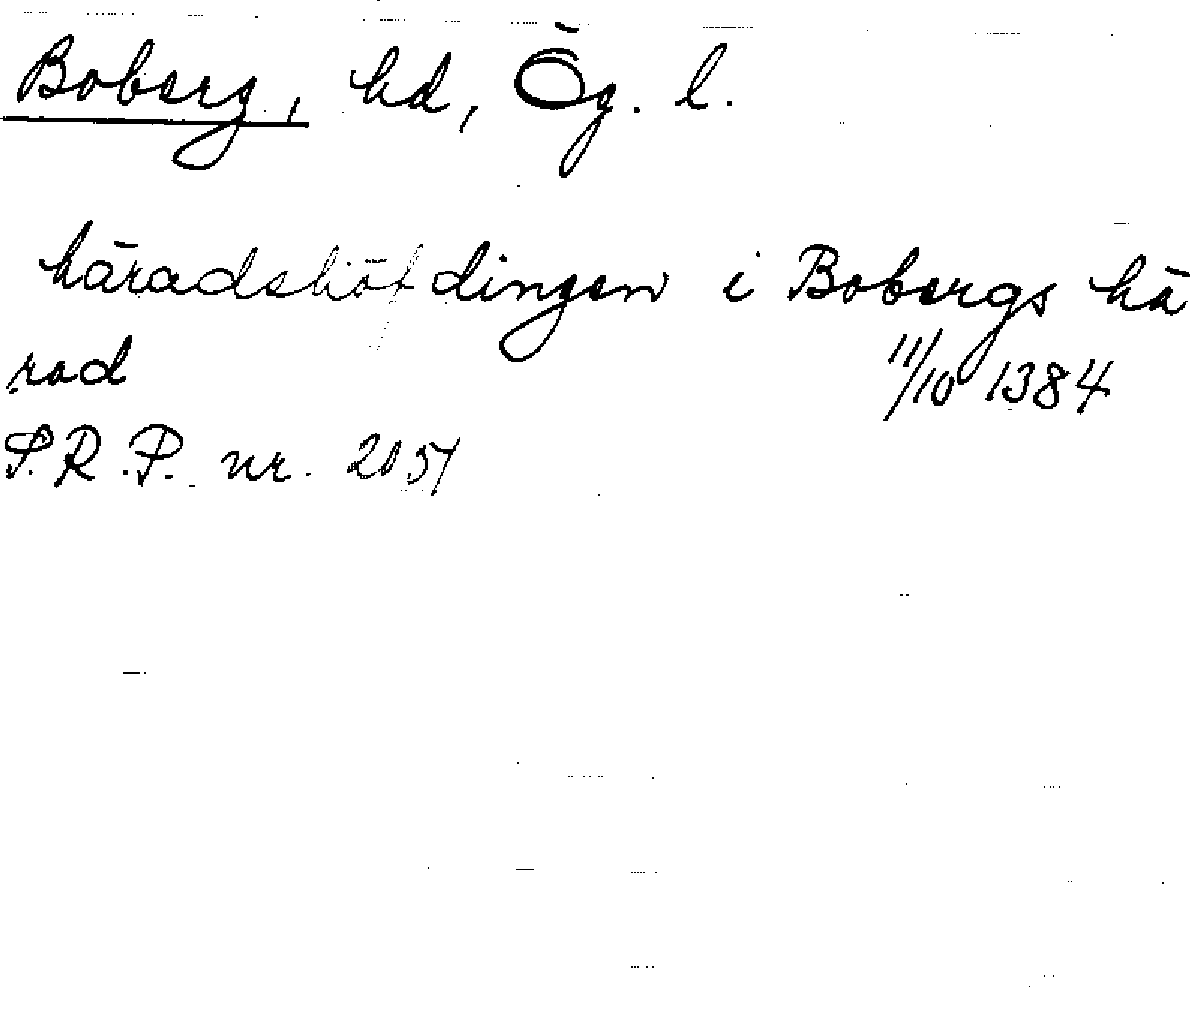 Boberg, hd, Ög. l.
häradshöfdingen i Bobergs hä
rad 11/10 1384
S.R.P. nr. 2051